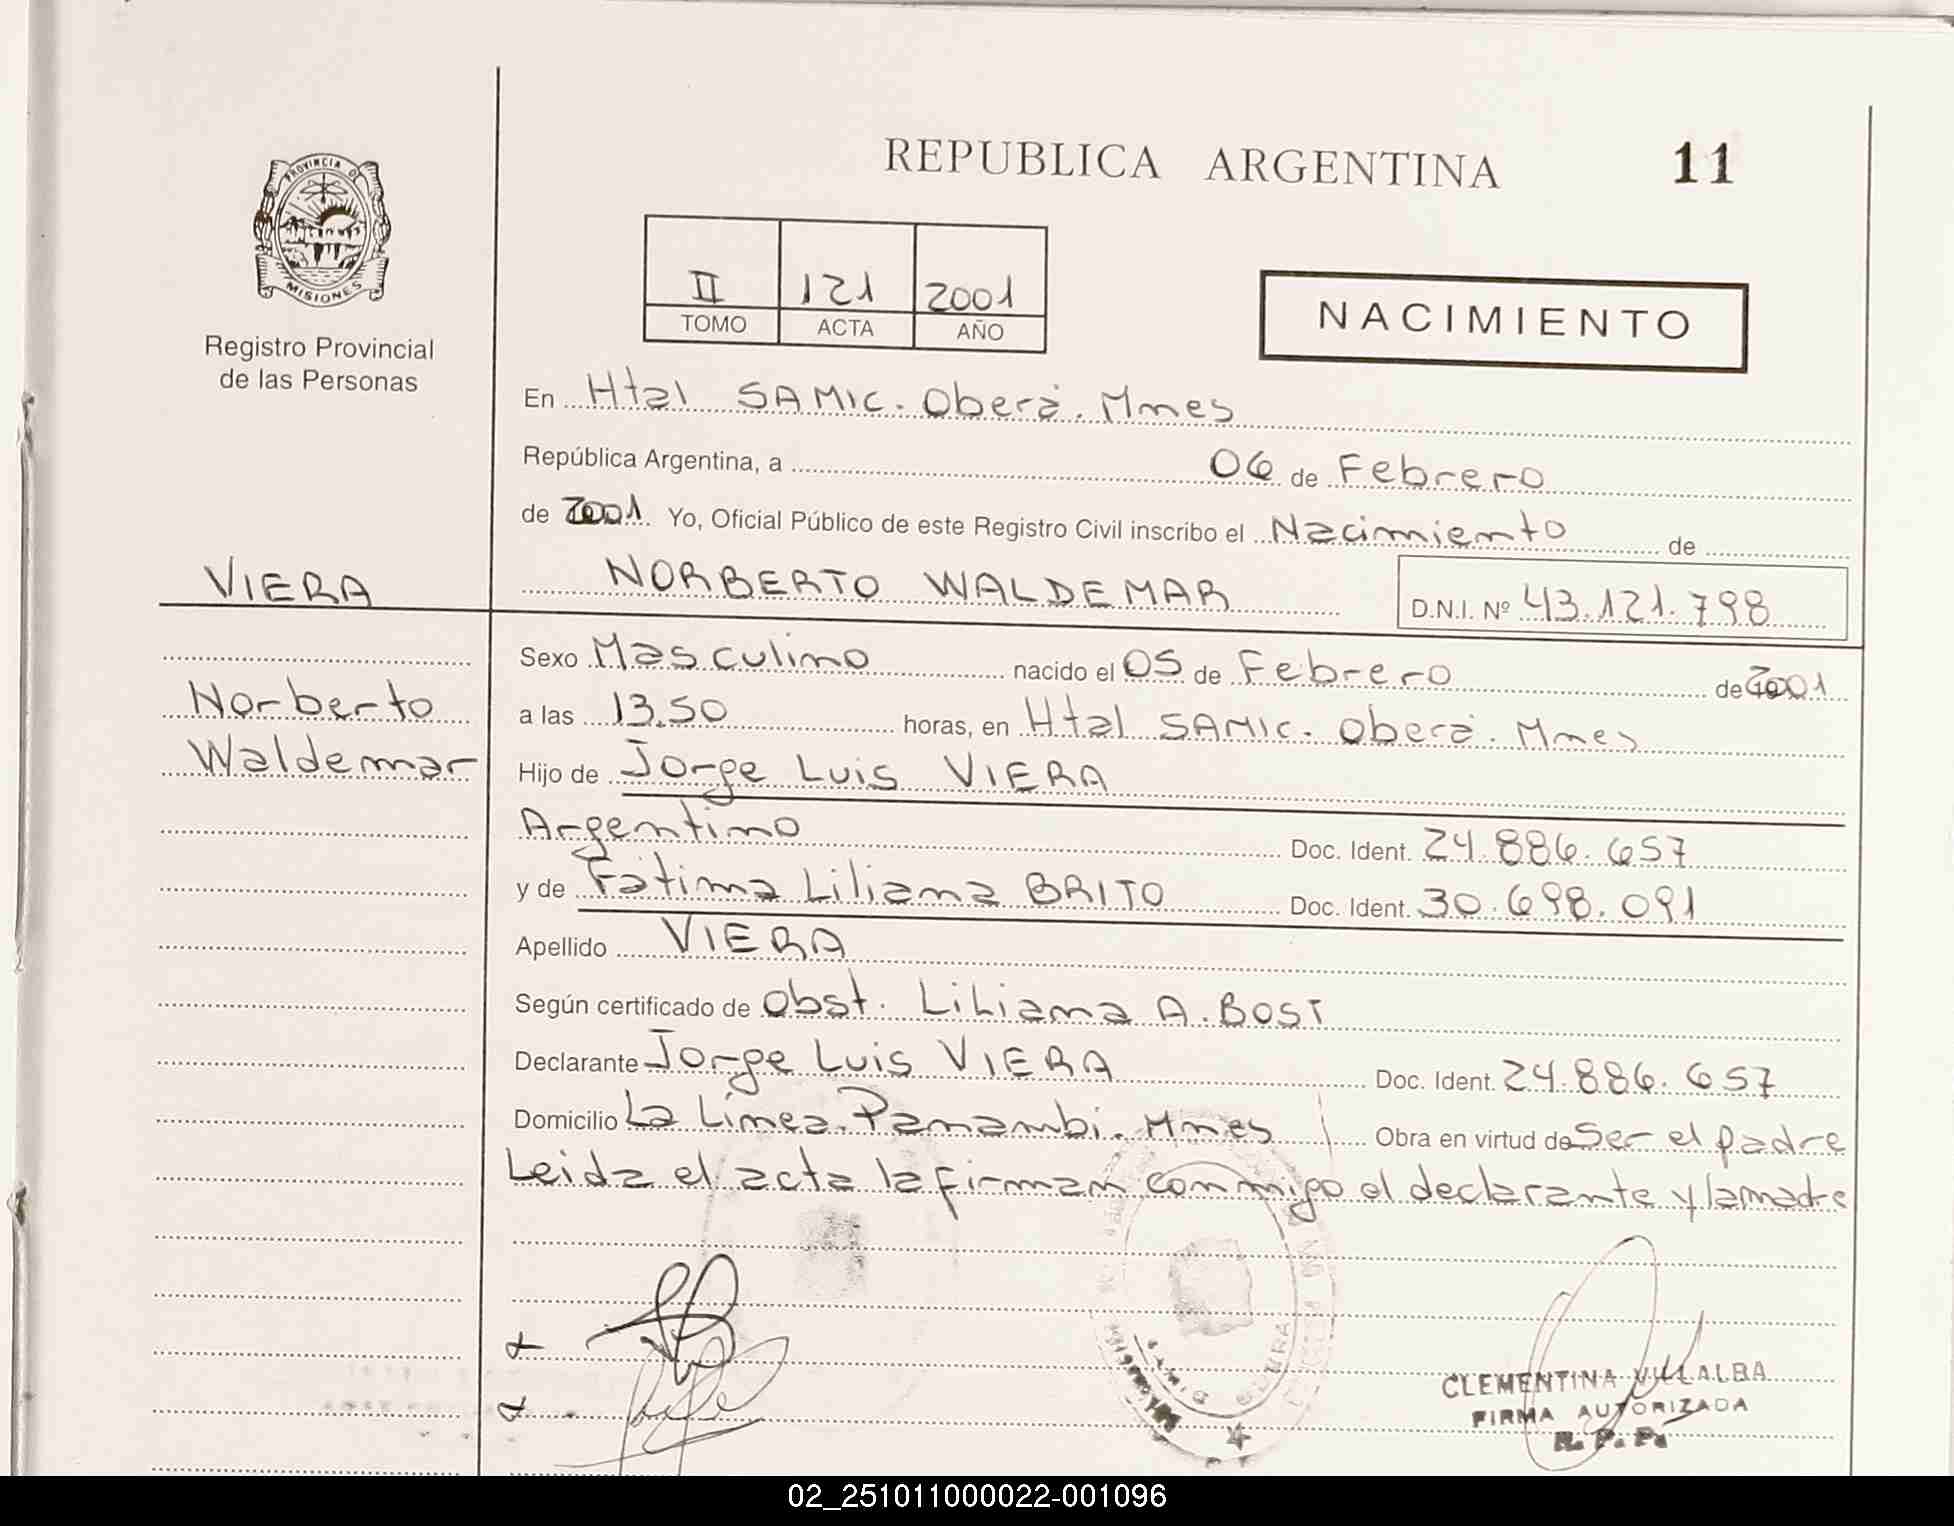 REPUBLICA ARGENTINA 11
PROVINCIA DE
MISIONES
Registro Provincial
de las Personas
II 121 2001
TOMO ACTA AÑO
NACIMIENTO
En Htal SAMIC. Oberá. Mnes
República Argentina, a 06 de Febrero
de 2001. Yo, Oficial Público de este Registro Civil inscribo el Nacimiento de
VIERA
NORBERTO WALDEMAR D.N.I. Nº 43.121.798
Norberto
Waldemar
Sexo Masculino nacido el 05 de Febrero de 2001
a las 13.50 horas, en Htal SAMIC. Oberá. Mnes
Hijo de Jorge Luis VIERA
Argentino Doc. Ident. 24.886.657
y de Fátima Liliana BRITO Doc. Ident. 30.698.091
Apellido VIERA
Según certificado de Obst. Liliana A. BOST
Declarante Jorge Luis VIERA Doc. Ident. 24.886.657
Domicilio La Línea. Panambi. Mnes Obra en virtud de Ser el padre
Leida el acta la firman conmigo el declarante y la madre
CLEMENTINA VILLALBA
FIRMA AUTORIZADA
R. P. P.
02_251011000022-001096